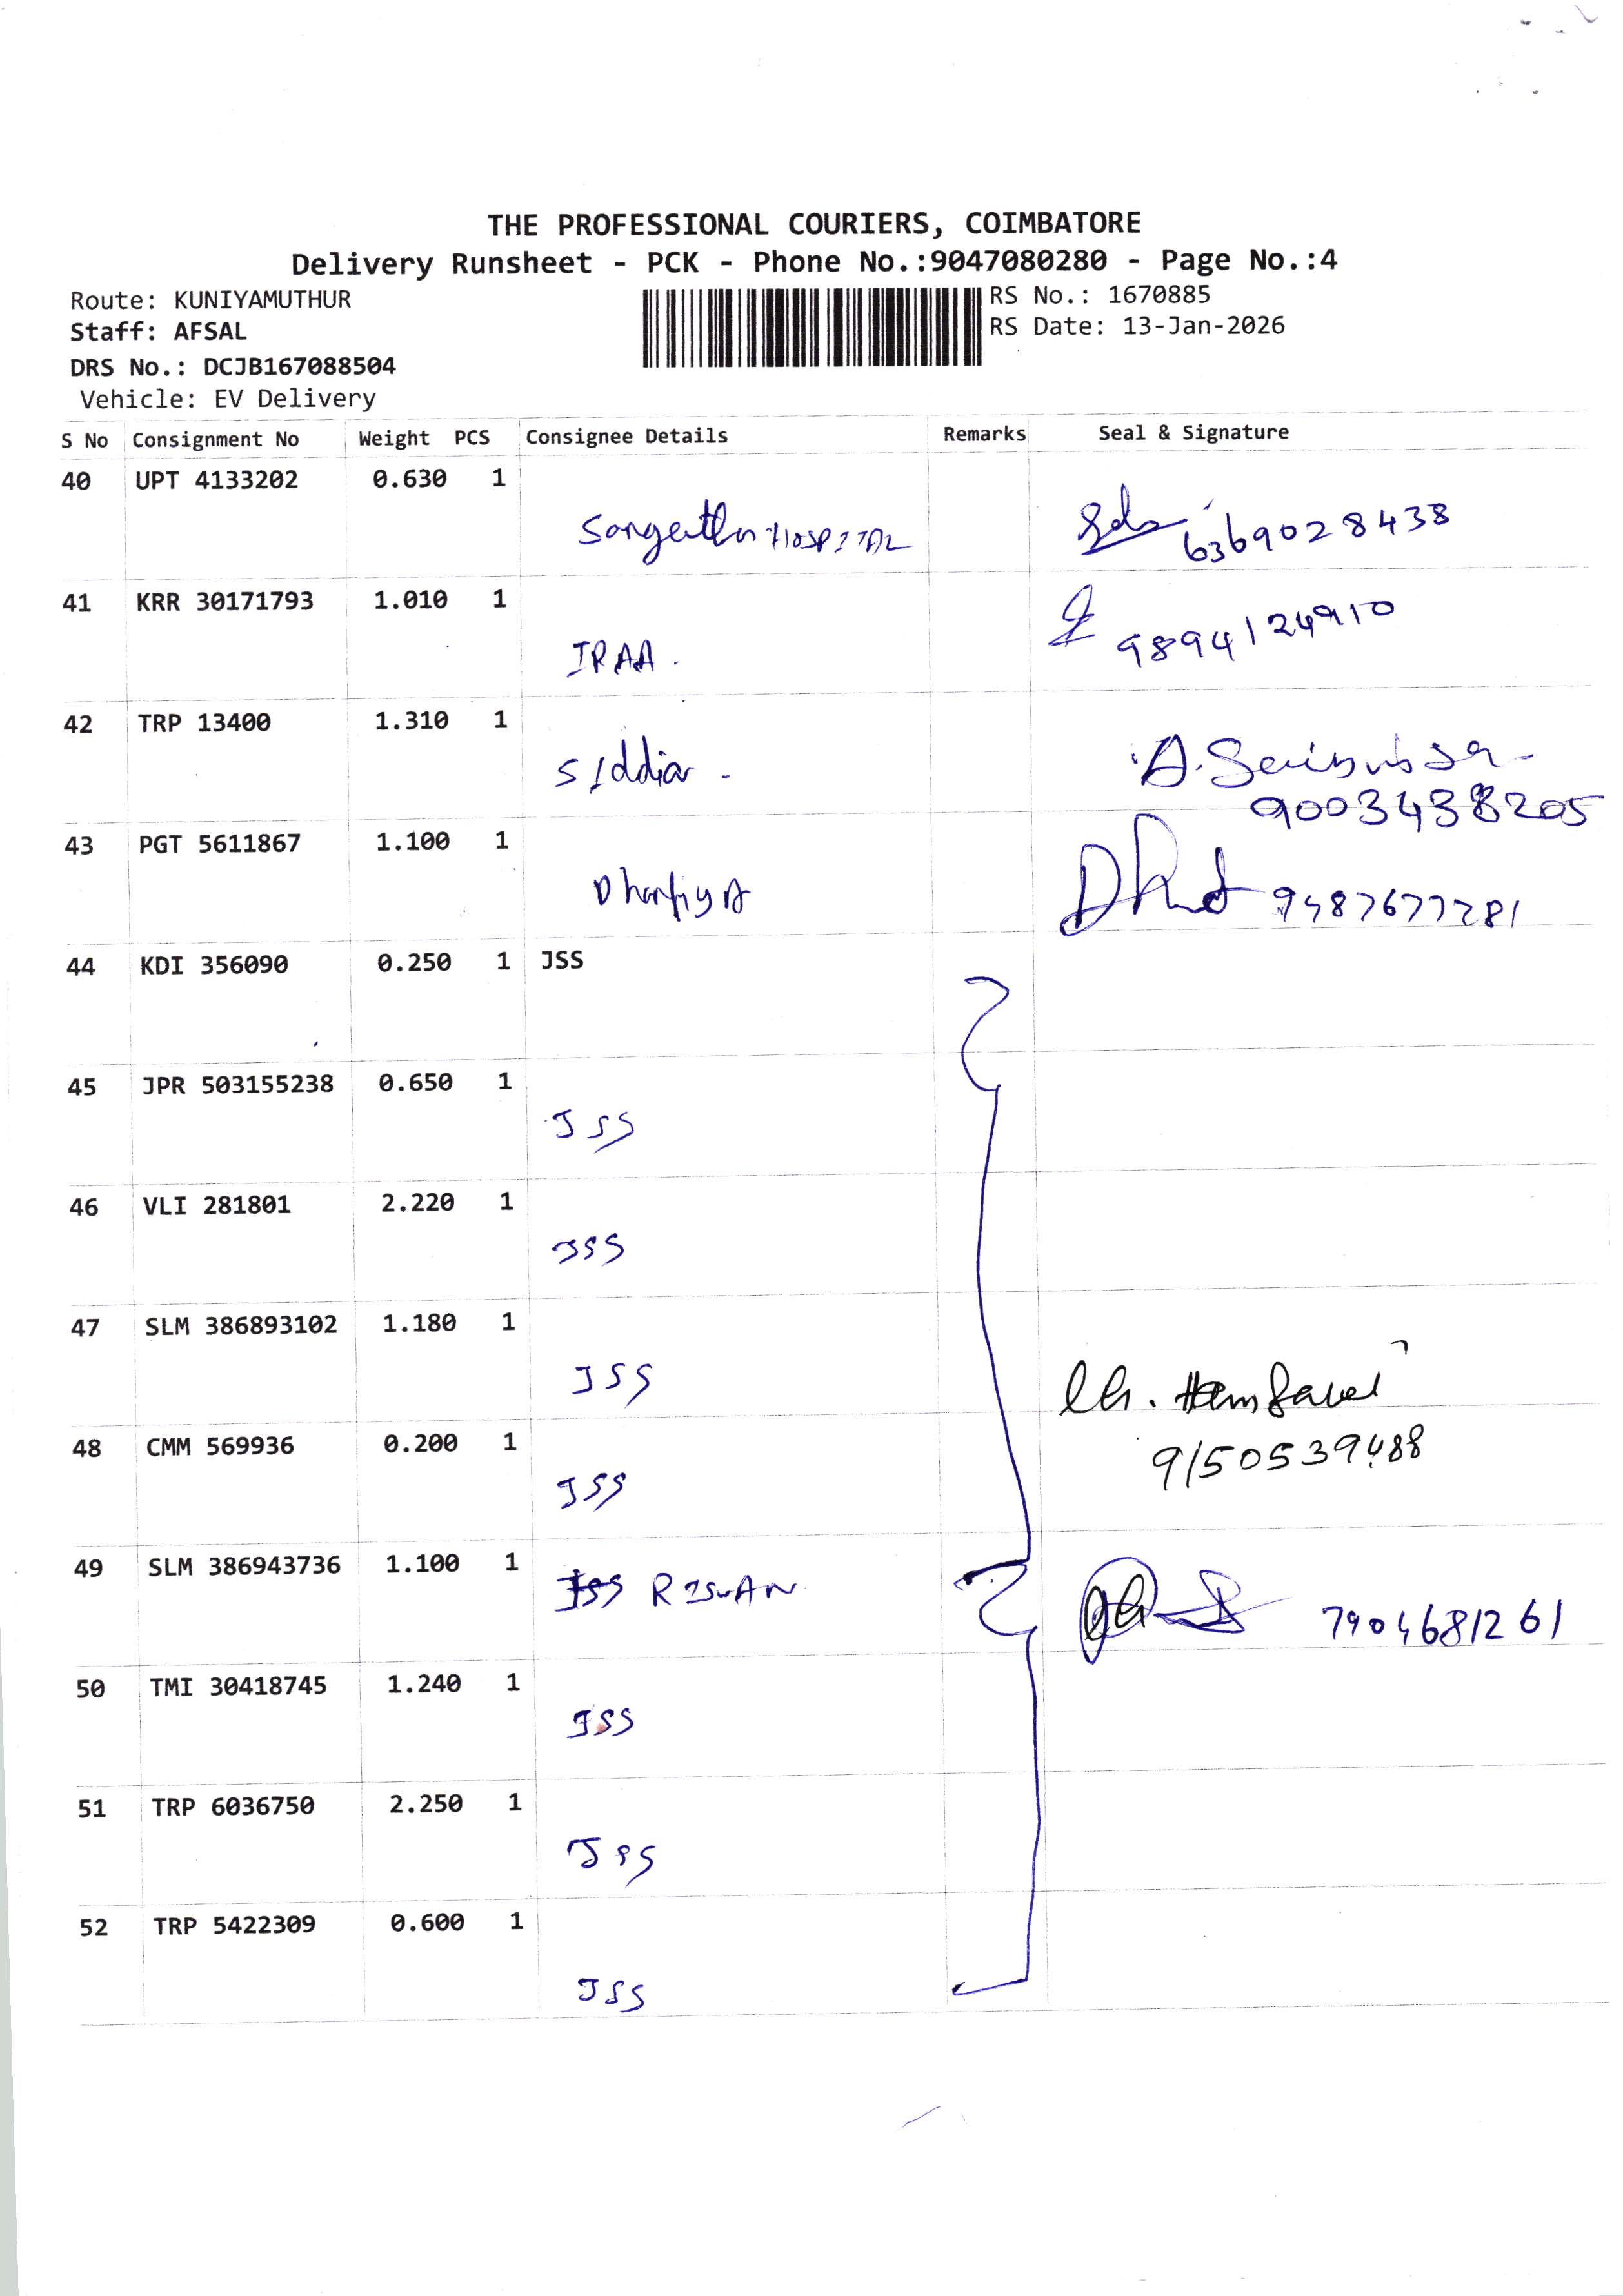 THE PROFESSIONAL COURIERS, COIMBATORE
Delivery Runsheet - PCK - Phone No.:9047080280 - Page No.:4
Route: KUNIYAMUTHUR
Staff: AFSAL
DRS No.: DCJB167088504
Vehicle: EV Delivery
RS No.: 1670885
RS Date: 13-Jan-2026
S No Consignment No Weight PCS Consignee Details Remarks Seal & Signature
40 UPT 4133202 0.630 1
HOSPITAL 6369028438
41 KRR 30171793 1.010 1
IRAA. 9894124910
42 TRP 13400 1.310 1
9003438205
43 PGT 5611867 1.100 1
9487677281
44 KDI 356090 0.250 1 JSS
45 JPR 503155238 0.650 1
JSS
46 VLI 281801 2.220 1
JSS
47 SLM 386893102 1.180 1
JSS
48 CMM 569936 0.200 1
9150539488
JSS
49 SLM 386943736 1.100 1
JSS RISWAN 7904681261
50 TMI 30418745 1.240 1
JSS
51 TRP 6036750 2.250 1
JSS
52 TRP 5422309 0.600 1
JSS